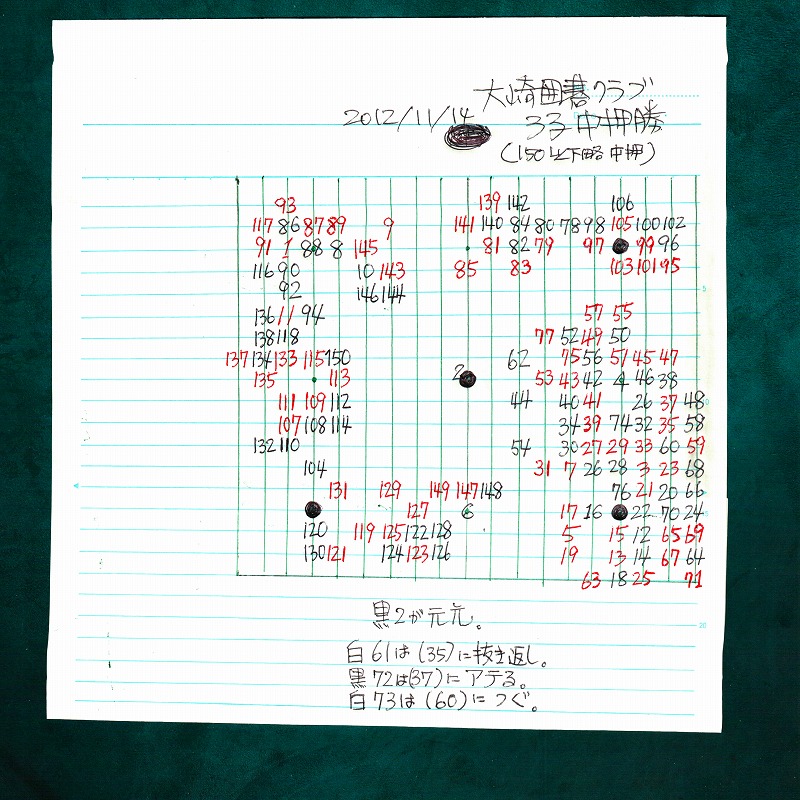 大崎囲碁クラブ
2012/11/14 3子中押勝
(150以下略 中押)
139 142 106
93
117 86 87 89 9 141 140 84 80 78 98 105 100 102
91 1 88 8 145 81 82 79 97 99 96
116 90 10 143 85 83 103 101 95
92 146 144
136 11 94 57 55
138 118 77 52 49 50
137 134 133 115 150 62 75 56 51 45 47
135 113 2 53 43 42 4 46 38
111 109 112 44 40 41 26 37 48
107 108 114 34 39 74 32 35 58
132 110 54 30 27 29 33 60 59
104 31 7 26 28 3 23 68
131 129 149 147 148 76 21 20 66
127 6 17 16 22 70 24
120 119 125 122 128 5 15 12 65 69
130 121 124 123 126 19 13 14 67 64
63 18 25 71
5
10
20
黒2が元元。
白61は(35)に抜き返し。
黒72は(37)にアテる。
白73は(60)につぐ。